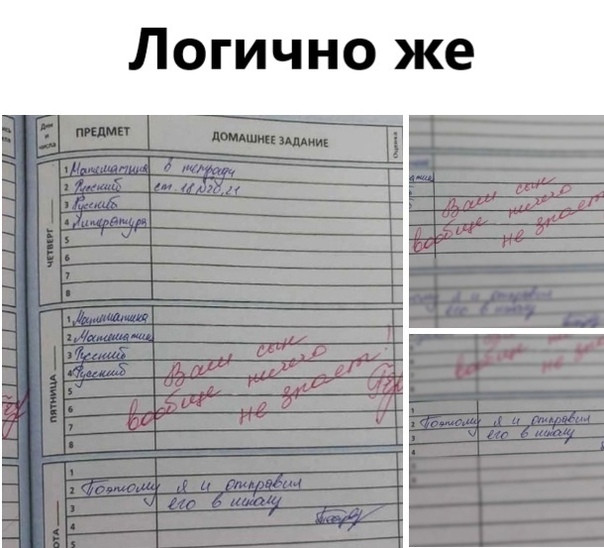 Логично же
Дни и числа
ПРЕДМЕТ
ДОМАШНЕЕ ЗАДАНИЕ
Оценка
ЧЕТВЕРГ
1 Математика в тетради
2 Русский ст. 18 №20, 21
3 Русский
4 Литература
5
6
7
8
ПЯТНИЦА
1 Математика
2 Математика
3 Русский
4 Русский
5
6
7
8
Ваш сын
вообще ничего
не знает!
1
2 Поэтому я и отправил
3 его в школу
4
5
Ваш сын
вообще ничего
не знает
я и отправил
его в школу
вообще
не знает
1
2 Поэтому я и отправил
3 его в школу
4